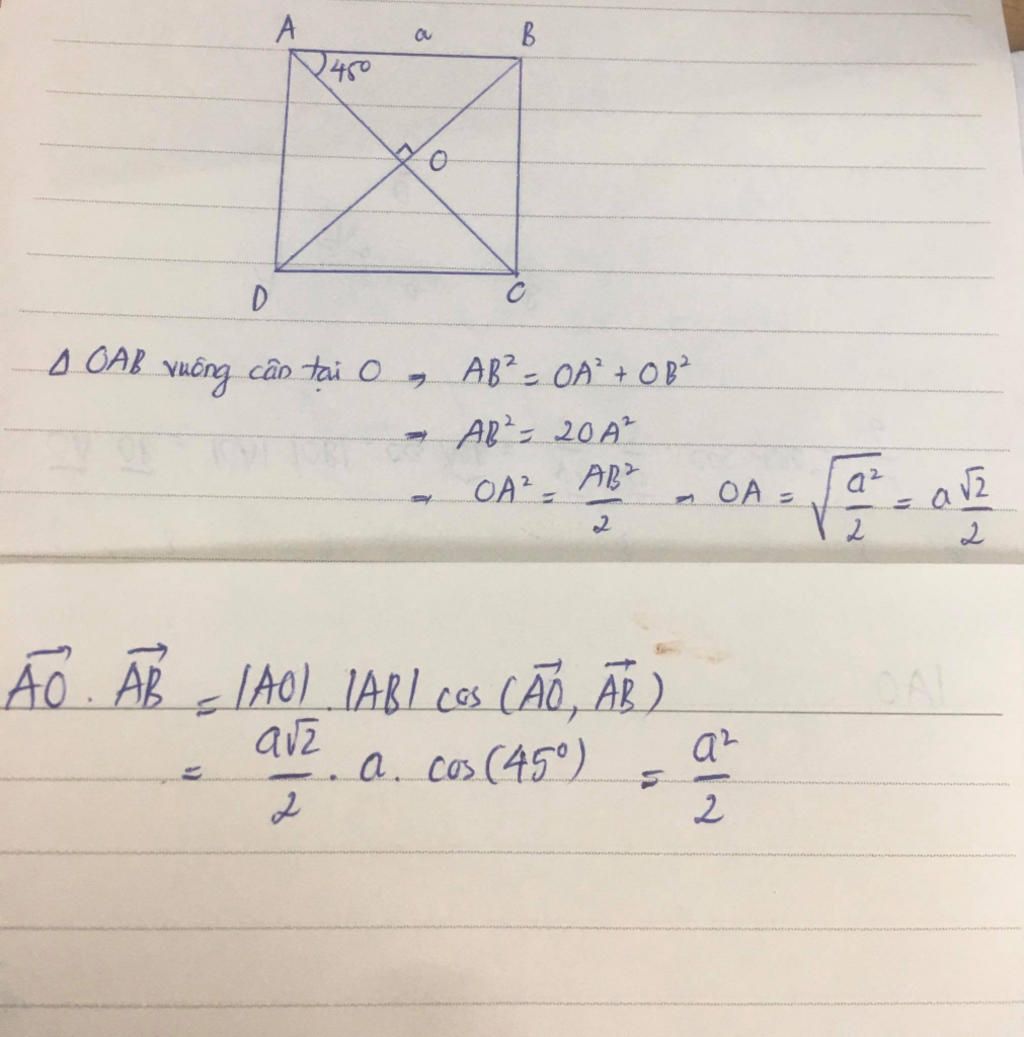 A a B
45°
O
D C
Δ OAB vuông cân tại O → AB² = OA² + OB²
→ AB² = 2OA²
→ OA² = AB²/2 → OA = √(a²/2) = a√2/2
→AO . →AB = |AO| . |AB| cos (→AO, →AB)
= a√2/2 . a . cos(45°) = a²/2